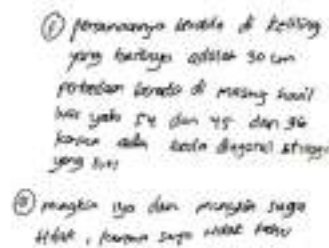 ① persamaannya berada di keliling
yang hasilnya adalah 30 cm
perbedaan berada di masing hasil
luas yaitu 54 dan 45 dan 36
karena ada beda diagonal
yang
② mungkin iya dan mungkin saja
tidak, karena saya tidak tahu